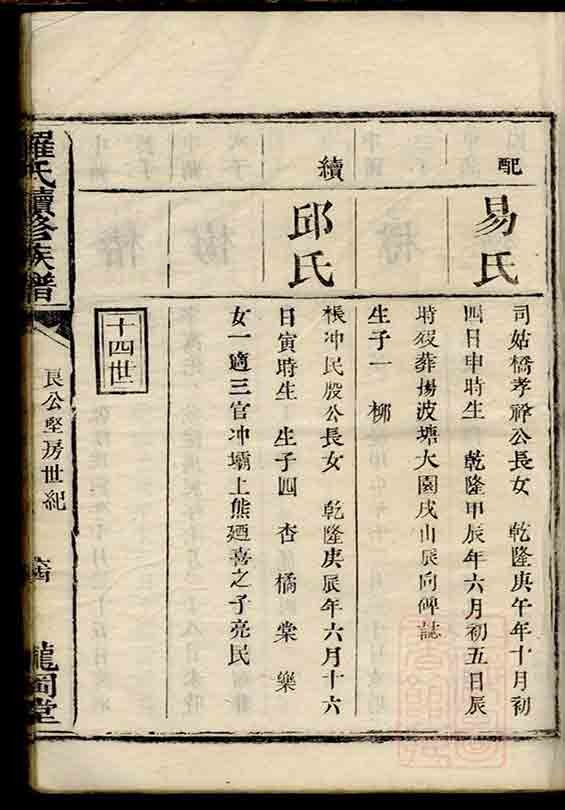 配
易氏
司姑橋孝祥公長女 乾隆庚午年十月初
四日申時生 乾隆甲辰年六月初五日辰
時歿葬楊波塘大園戌山辰向碑誌
生子一 柳
續
邱氏
橫冲民殷公長女 乾隆庚辰年六月十六
日寅時生 生子四 杏橘棠樂
女一適三官冲壩上熊廼喜之子亮民
十四世
羅氏續修族譜
良公堅房世紀
龍岡堂